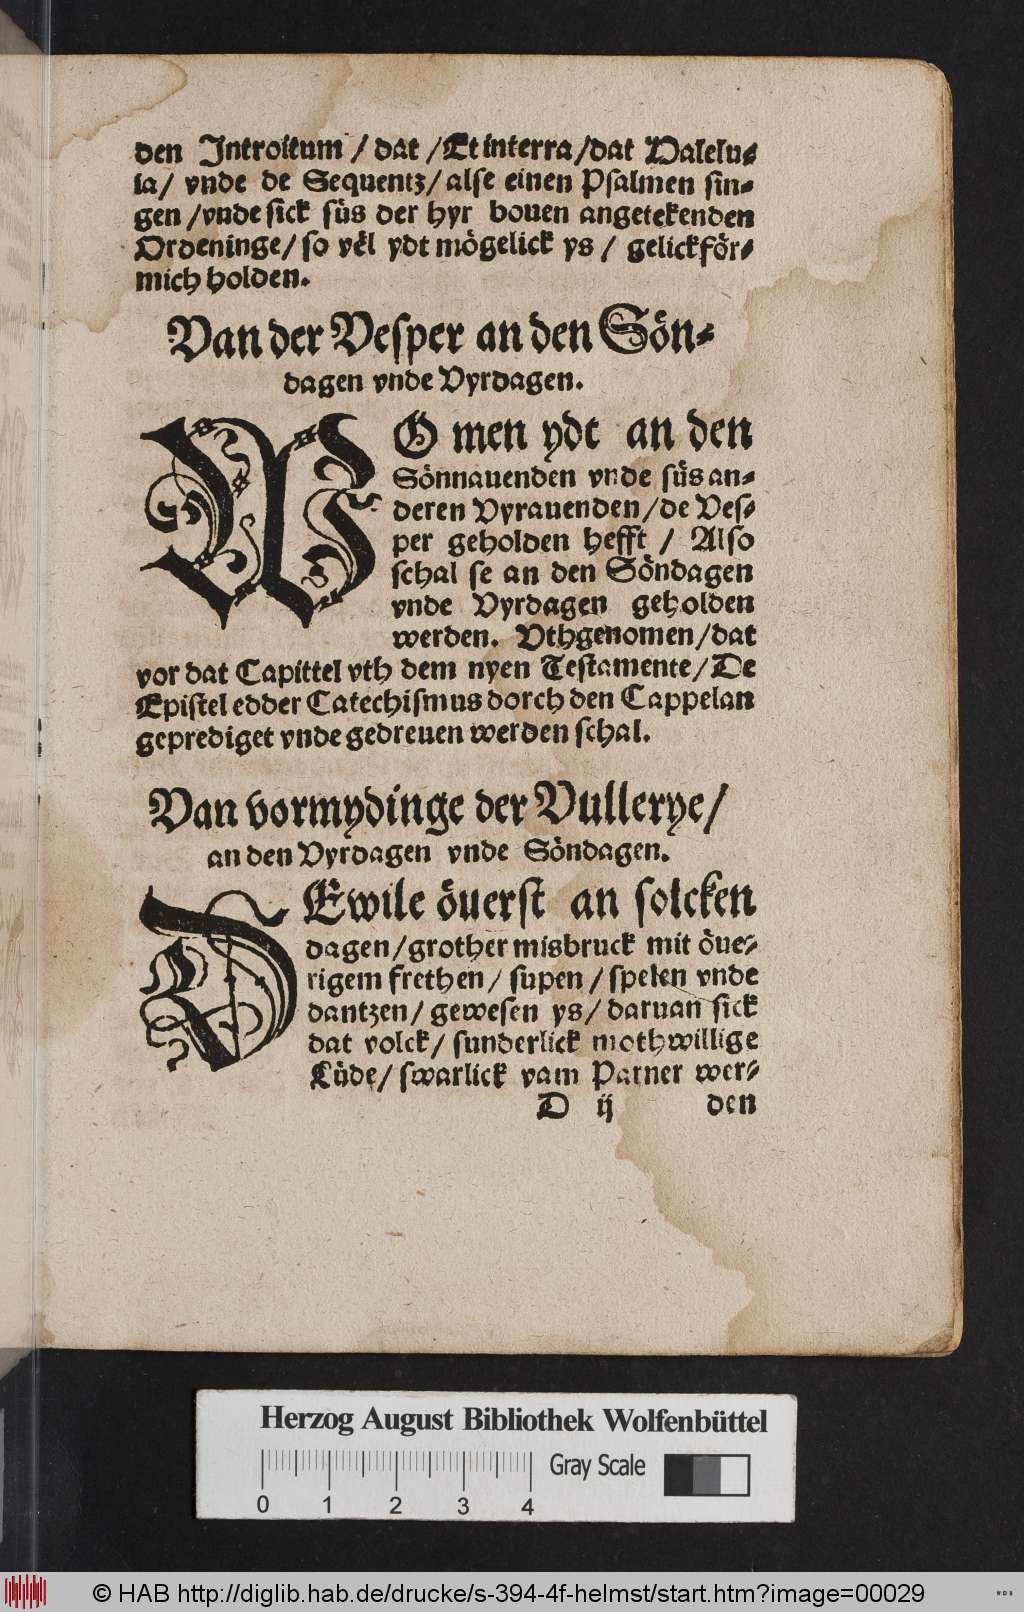 den Introitum / dat / Et in terra / dat Halelu⸗
ia / vnde de Sequentz / alse einen Psalmen sin⸗
gen / vnde sick süs der hyr bouen angetekenden
Ordeninge / so vël ydt mögelick ys / gelickför⸗
mich holden.
Van der Vesper an den Sön⸗
dagen vnde Vyrdagen.
WO men ydt an den
Sönnauenden vnde süs an⸗
deren Vyrauenden / de Ves⸗
per geholden hefft / Also
schal se an den Söndagen
vnde Vyrdagen geholden
werden. Vthgenomen / dat
vor dat Capittel vth dem nyen Testamente / De
Epistel edder Catechismus dorch den Cappelan
geprediget vnde gedreuen werden schal.
Van vormydinge der Vullerye /
an den Vyrdagen vnde Söndagen.
DEwile öuerst an solcken
dagen / grother misbruck mit öue⸗
rigem frethen / supen / spelen vnde
dantzen / gewesen ys / daruan sick
dat volck / sunderlick mothwillige
Lüde / swarlick vam Parner wer⸗
D ij den
Herzog August Bibliothek Wolfenbüttel
Gray Scale
0 1 2 3 4
© HAB http://diglib.hab.de/drucke/s-394-4f-helmst/start.htm?image=00029